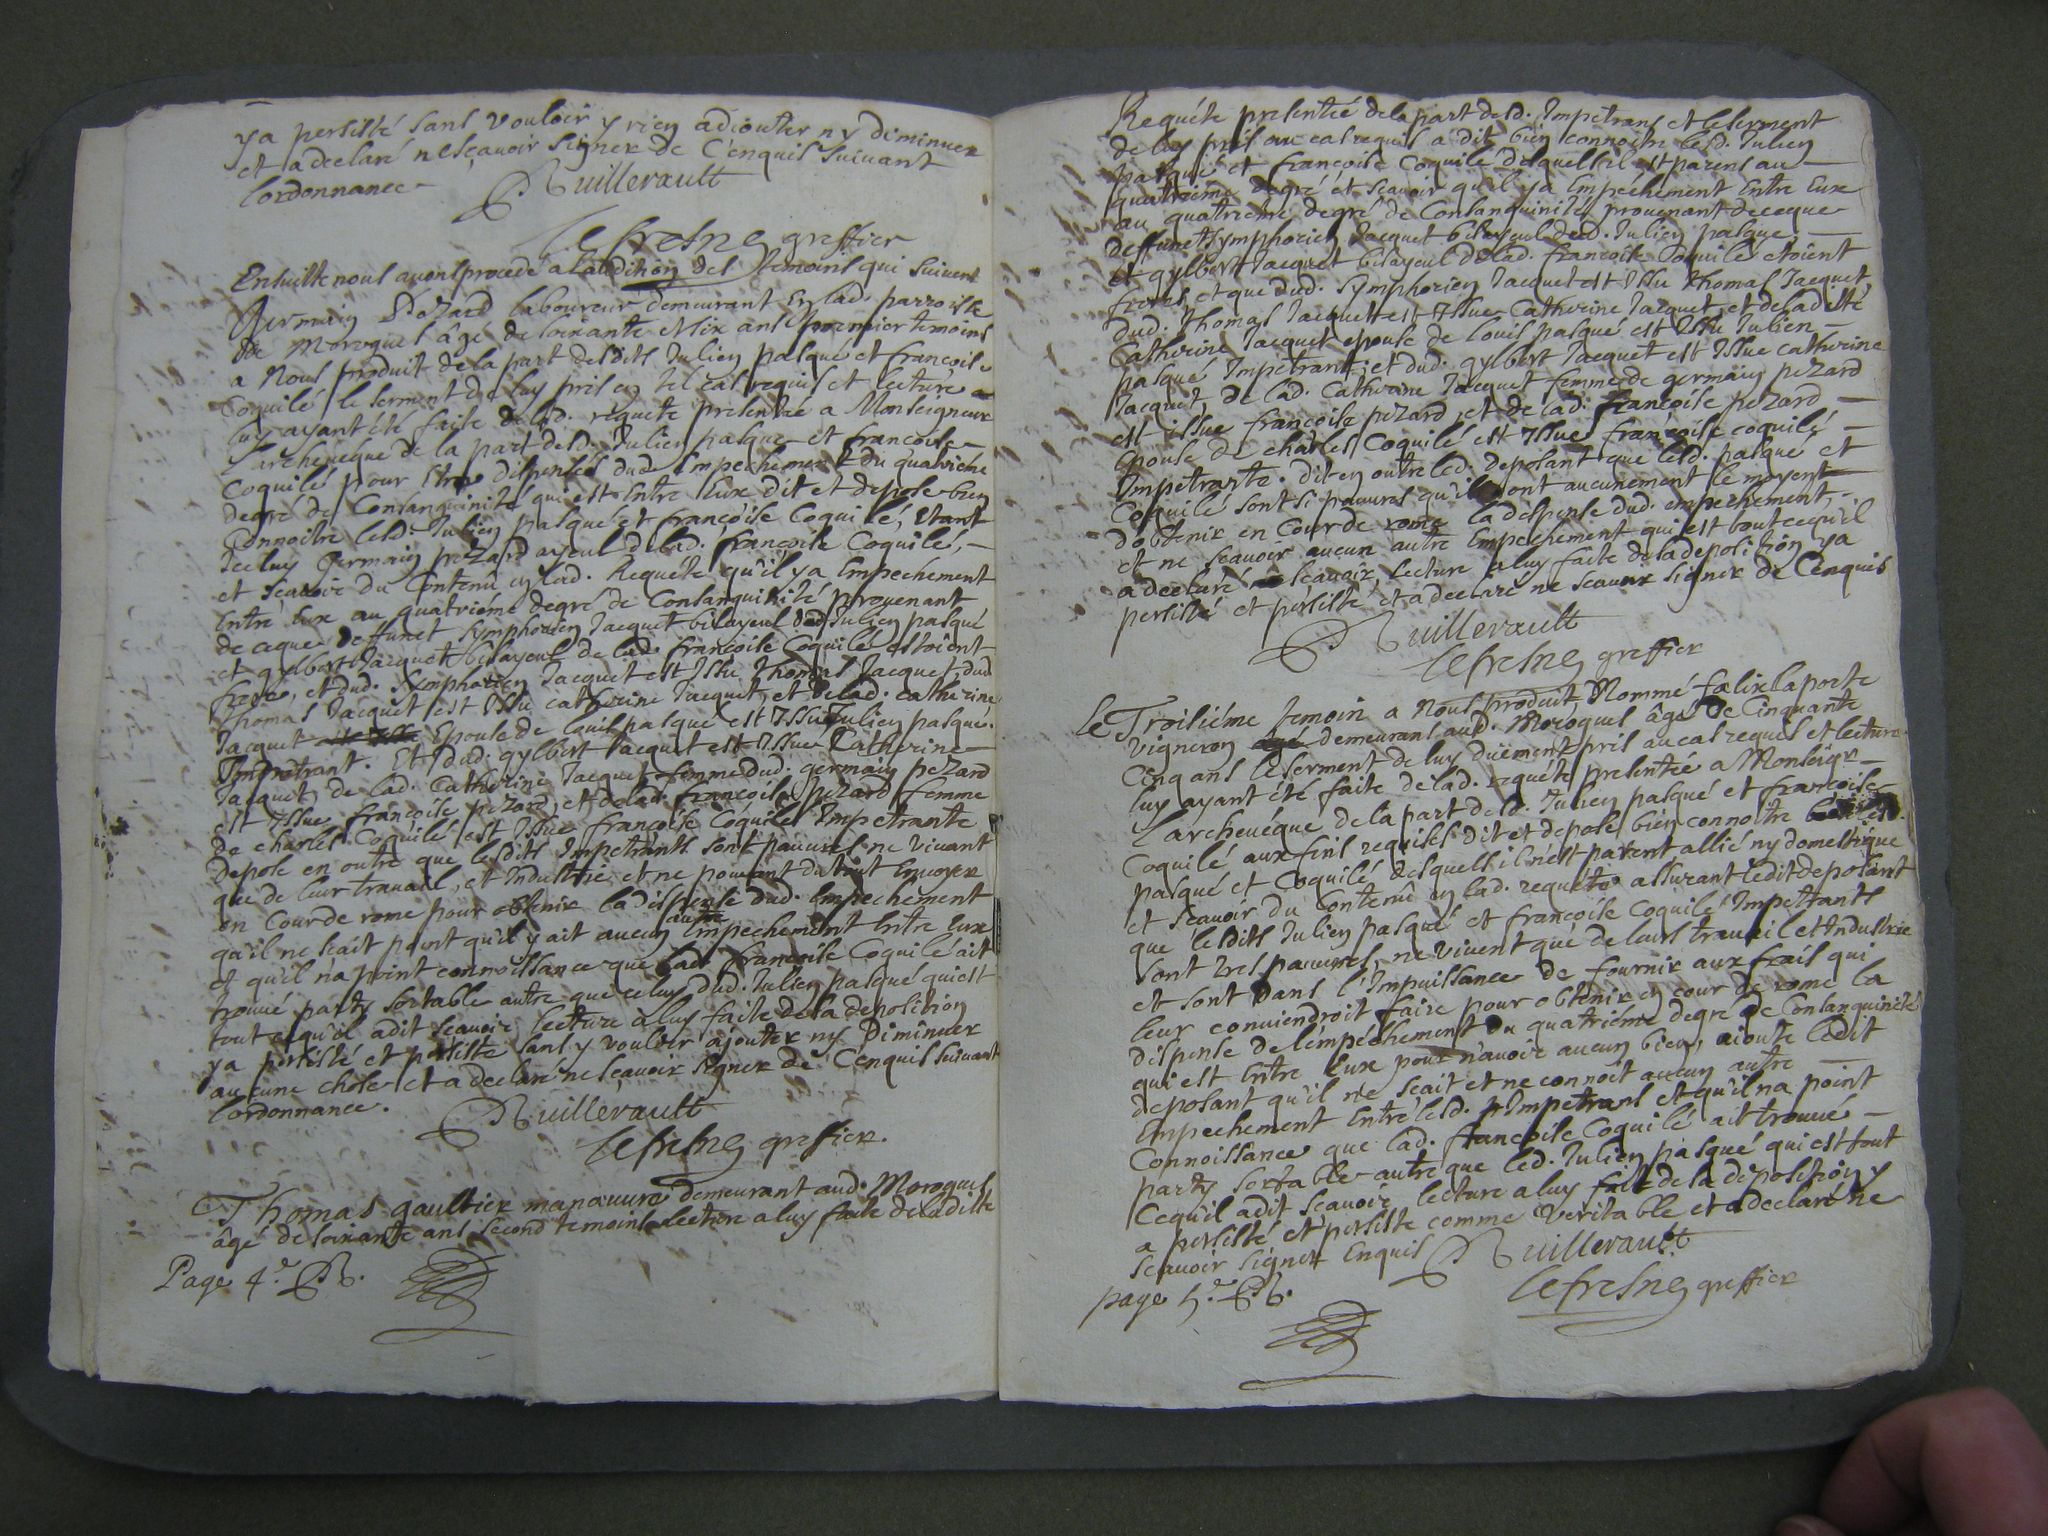 y a persisté sans vouloir y rien adiouter ny diminuer
et a declaré ne sçavoir signer de c'enquis suivant
lordonnance
B Ruillerault
Lefresne greffier
Ensuitte nous avons procedé a l'audition des temoins qui suivent
Germain Pezard laboureur demeurant en lad. parroisse
de Moroques âgé de soixante et six ans premier temoins
a nous produit de la part desdits Julien pasqué et françoise
Coquilé le serment de luy pris en tel cas requis et lecture a
luy ayant été faite de lad. requete presentée a Monseigneur
L'archeveque de la part desd. Julien pasque et francoise
Coquilé pour etre dispensés dud. Empechement du quatrieme
degré de Consanguinité qui est Entre Eux dit et depose bien
Connoitre lesd. Julien pasqué et françoise Coquilé, etant
Iceluy Germain pezard ayeul de lad. françoise Coquilé,
et scavoir du Contenû en lad. Requéte qu'il y a Empechement
Entre Eux au quatriéme degré de Consanguinité provenant
de ceque deffunct symphorien Jacquet bisayeul dud Julien pasqué
et gylbert Jacquet bisayeul de lad. françoise Coquilé estoient
freres, et dud. Symphorien Jacquet est Issu Thomas Jacquet, dud
Thomas Jacquet est Issu catherine Jacquet, et de lad. catherine
Jacquet Epouse de louis pasqué est Issu Julien pasque.
Impetrant. Et dud. gylbert Jacquet est Issue Catherine
Jacquet, de lad. Catherine Jacquet femme dud. germain pezard
est Issue françoise pezard, et de lad. françoise pezard femme
de charles Coquilé est Issue françoise Coquilé Impetrante
depose en outre que lesdits Impetrants sont pauvres ne vivant
que de leur travail, et Industrie et ne pouvant du tout Envoyer
en Cour de rome pour obtenir la dispense dud. Empechement
qu'il ne scait point qu'il y ait aucun autre Empechement Entre Eux
et qu'il n'a point connoissance que lad. françoise Coquilé ait
trouvé party sortable autre que celuy dud. Julien pasqué qui est
tout ce qu'il a dit scavoir, lecture a luy faite de sa deposition
y a persisté et persiste sans y vouloir ajouter ny Diminuer
aucune chose et a declaré ne sçavoir signer de Cenquis suivant
lordonnance.
B Ruillerault
Lefresne greffier.
Thomas gaultier manœuvre demeurant aud. Moroques
âgé de soixante ans second temoins lecture a luy faite de laditte
Page 4.e B.R.
Requéte presentée de la part desd. Impetrans et le serment
de luy pris au cas requis a dit bien connoitre lesd. Julien
pasqué et françoise Coquilé desquels il est parens au
quatriéme degré et scavoir qu'il y a Empéchement Entre Eux
au quatrieme degré de Consanguinité provenant de ceque
deffunct symphorien Jacquet bisayeul dud. Julien pasque,
et gylbert Jacquet bisayeul de lad. françoise Coquilé etoient
freres et que dud. Symphorien Jacquet est Issu Thomas Jacquet,
dud. Thomas Jacquet est Issue Catherine Jacquet, et de laditte
Catherine Jacquet epouse de louis pasqué est Issu Julien
pasqué Impetrant, et dud. gylbert Jacquet est Issue catherine
Jacquet, de lad. Catherine Jacquet femme de germain pezard
est issue françoise pezard, et de lad. françoise pezard
Epouse de charles Coquilé est Issue françoise coquilé
Impetrante. dit en outre led. deposant que lesd. pasqué et
Coquilé sont si pauvres qu'ils n'ont aucunement le moyent
d'obtenir en Cour de rome la dispense dud. empechement,
et ne scavoir aucun autre Empechement qui est tout ce qu'il
a declaré scavoir, lecture a luy faite de sa deposition y a
persisté et persiste, et a declaré ne scavoir signer de Cenquis
B Ruillerault
Lefresne greffier
Le Troisiéme temoin a Nous produit Nommé falix laporte
vigneron demeurans aud. Moroques âgé de Cinquante
Cinq ans le serment de luy düement pris au cas requis et lecture
luy ayant été faite de lad. requéte presentée a Monseigr
L'archevéque de la part desd. Julien pasqué et françoise
Coquilé aux fins requises dit et depose bien connoitre lesd.
pasqué et Coquilé desquels il n'est parent allié ny domestique
et scavoir du Contenû en lad. requéte assurant ledit deposant
que lesdits Julien pasqué et françoise Coquilé Impettants
sont tres pauvres, ne vivent que de leurs travail et Industrie
et sont Dans l'Impuissance de fournir aux frais qui
leur conviendroit faire pour obtenir en cour de rome la
dispense de lémpéchement du quatriéme degré de Consanguinité
qui est Entre Eux pour n'avoir aucun bien, ajoute ledit
deposant qu'il ne scait et ne connoit aucun autre
Empechement Entre lesd. Impetrans et qu'il n'a point
Connoissance que lad. françoise Coquilé ait trouvé
party sortable autre que led. Julien pasqué qui est tout
Cequ'il a dit scavoir lecture a luy fait de sa deposition y
a persisté et persiste comme veritable et a declaré ne
scavoir signer Enquis
B Ruillerault
Lefresne greffier
page 5.e B.R.